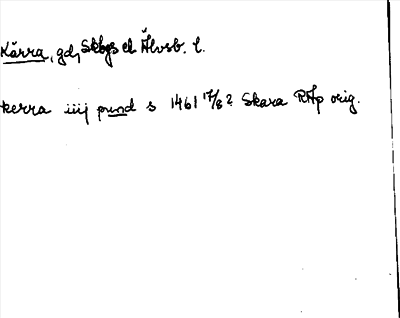 Kärra, gd, Skbgs el Älvsb. l.
kerra iiij pund s 1461 17/8 ? Skara RAp orig.